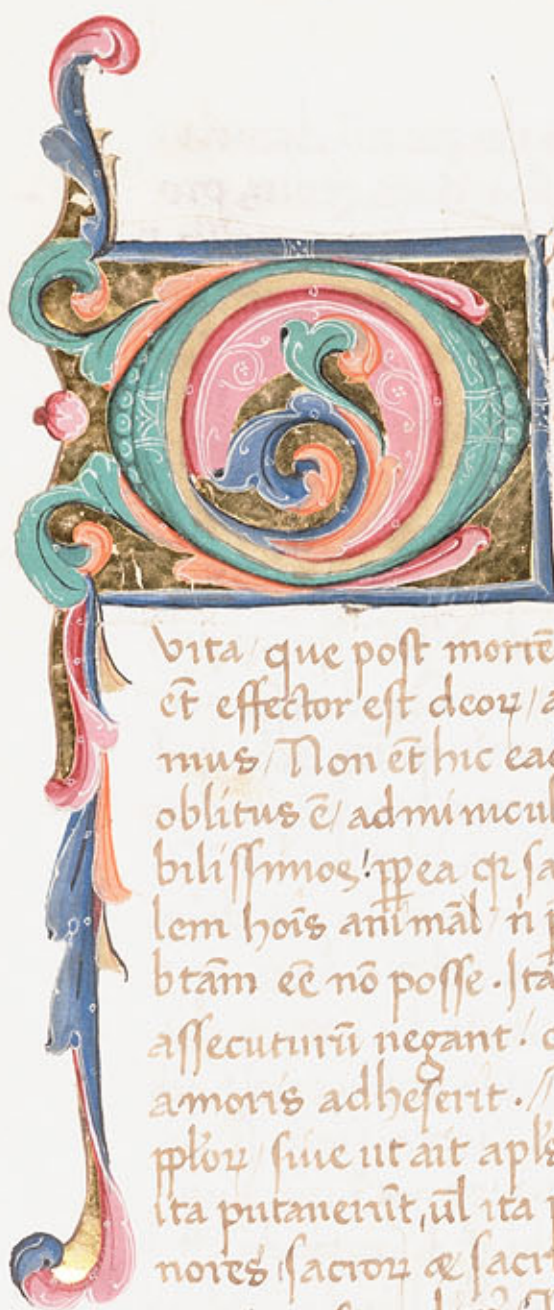 vita / que post mortē
et̄ effector est deoꝝ / a
mus / Non et̄ hic eac
oblitus ē / adminicul
bilissimos ! ꝓpea qꝛ sa
lem hoīs animāl n̄
btām eē nō posse . Ita
assecuturū negant !
amoris adheserit . //
pp̄loꝝ / siue ut ait apl̄s
ita putauerūt , ul̄ ita
nores / sacroꝝ &